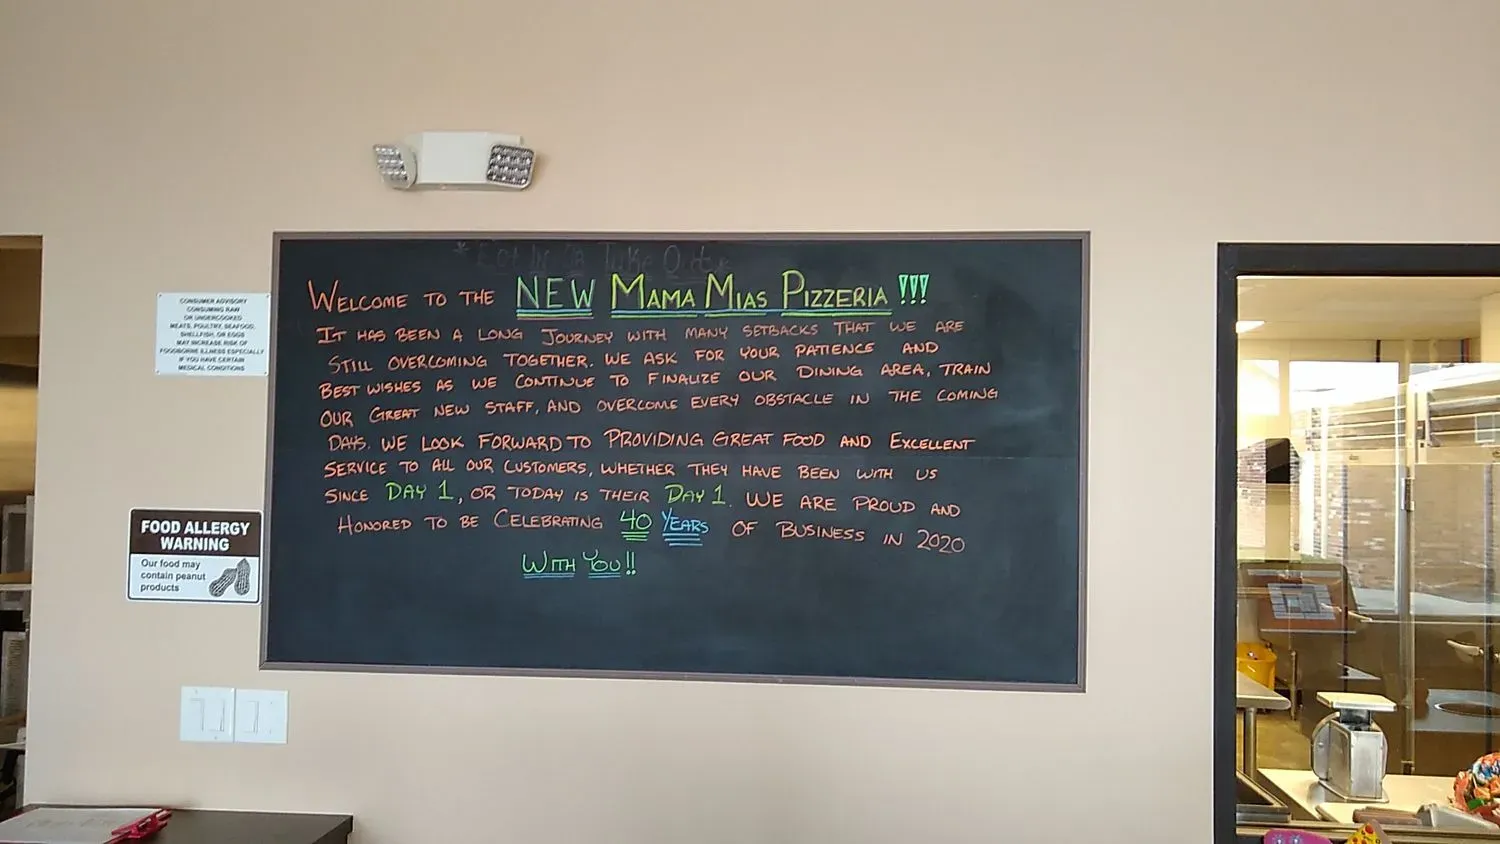 * Eat In Or Take Out
WELCOME TO THE NEW MAMA MIAS PIZZERIA !!!
IT HAS BEEN A LONG JOURNEY WITH MANY SETBACKS THAT WE ARE
STILL OVERCOMING TOGETHER. WE ASK FOR YOUR PATIENCE AND
BEST WISHES AS WE CONTINUE TO FINALIZE OUR DINING AREA, TRAIN
OUR GREAT NEW STAFF, AND OVERCOME EVERY OBSTACLE IN THE COMING
DAYS. WE LOOK FORWARD TO PROVIDING GREAT FOOD AND EXCELLENT
SERVICE TO ALL OUR CUSTOMERS, WHETHER THEY HAVE BEEN WITH US
SINCE DAY 1, OR TODAY IS THEIR DAY 1. WE ARE PROUD AND
HONORED TO BE CELEBRATING 40 YEARS OF BUSINESS IN 2020
WITH YOU!!
CONSUMER ADVISORY
CONSUMING RAW
OR UNDERCOOKED
MEATS, POULTRY, SEAFOOD,
SHELLFISH, OR EGGS
MAY INCREASE RISK OF
FOODBORNE ILLNESS ESPECIALLY
IF YOU HAVE CERTAIN
MEDICAL CONDITIONS
FOOD ALLERGY
WARNING
Our food may
contain peanut
products